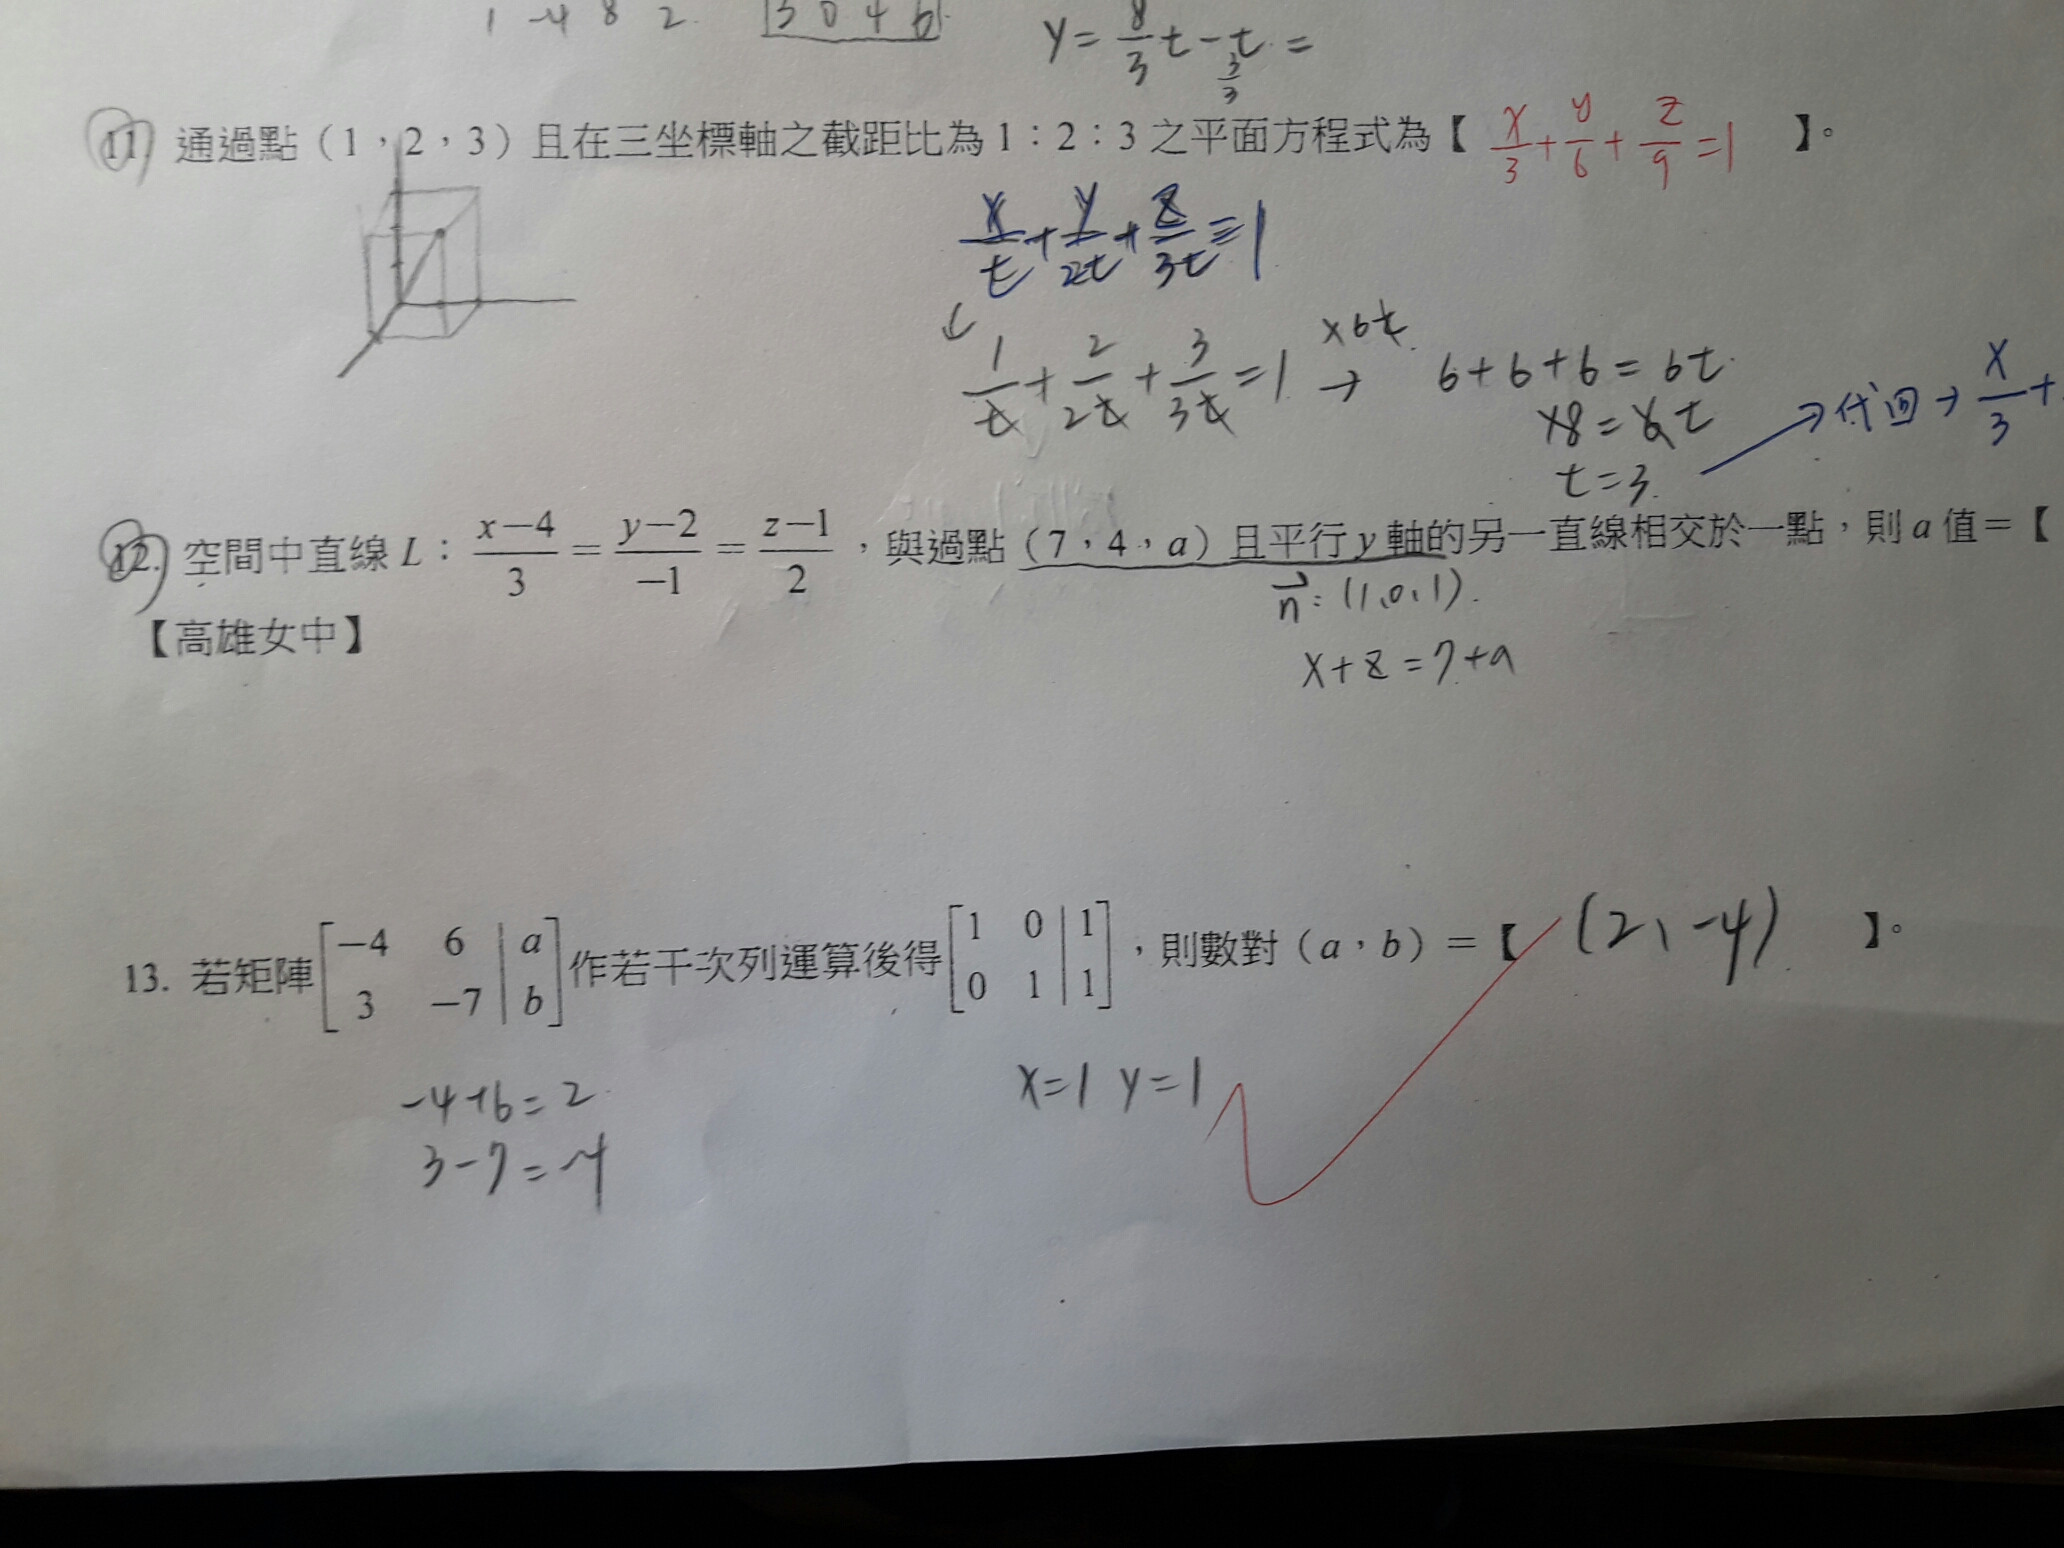 1 -4 8 2 3 0 4 6
y = 8/3 t - t =
3/3
11. 通過點（1，2，3）且在三坐標軸之截距比為 1：2：3 之平面方程式為【 x/3 + y/6 + z/9 = 1 】。
x/t + y/2t + z/3t = 1
↓
1/t + 2/2t + 3/3t = 1 ×6t → 6+6+6 = 6t
18 = 6t
t = 3 → 代回 → x/3 +
12. 空間中直線 L： x−4/3 = y−2/−1 = z−1/2 ，與過點（7，4，a）且平行 y 軸的另一直線相交於一點，則 a 值＝【
n: (1,0,1).
【高雄女中】
x+z = 7+a
13. 若矩陣[−4 6 | a
3 −7 | b]作若干次列運算後得[1 0 | 1
0 1 | 1]，則數對（a，b）＝【 (2、-4) 】。
x=1 y=1
-4+6=2
3-7=-4